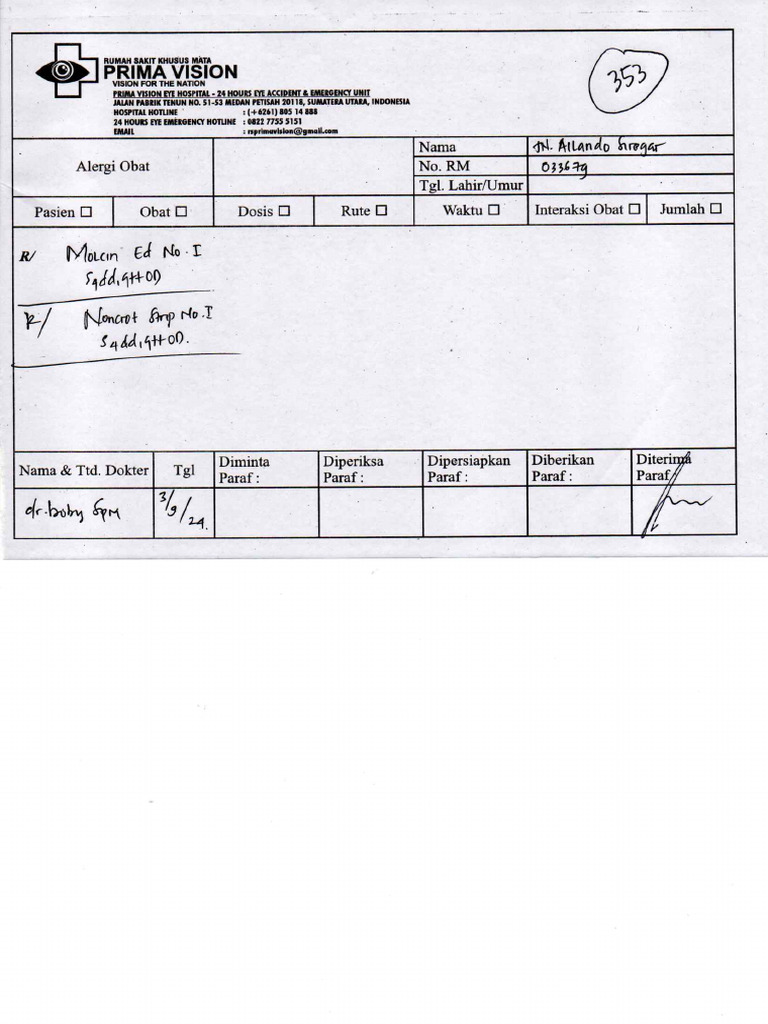 RUMAH SAKIT KHUSUS MATA
PRIMA VISION
VISION FOR THE NATION
PRIMA VISION EYE HOSPITAL - 24 HOURS EYE ACCIDENT & EMERGENCY UNIT
JALAN PABRIK TENUN NO. 51-53 MEDAN PETISAH 20118, SUMATERA UTARA, INDONESIA
HOSPITAL HOTLINE : (+6261) 805 14 888
24 HOURS EYE EMERGENCY HOTLINE : 0822 7755 5151
EMAIL : rsprimavision@gmail.com
353
Alergi Obat
Nama TN. Ailando Siregar
No. RM 033679
Tgl. Lahir/Umur
Pasien ☐ Obat ☐ Dosis ☐ Rute ☐ Waktu ☐ Interaksi Obat ☐ Jumlah ☐
R/ Molcin Ed No. I
S4dd, gtt OD
R/ Noncrot Strip No. I
S4dd, gtt OD.
Nama & Ttd. Dokter Tgl Diminta Paraf : Diperiksa Paraf : Dipersiapkan Paraf : Diberikan Paraf : Diterima Paraf
dr. boby SpM 3/9/24.